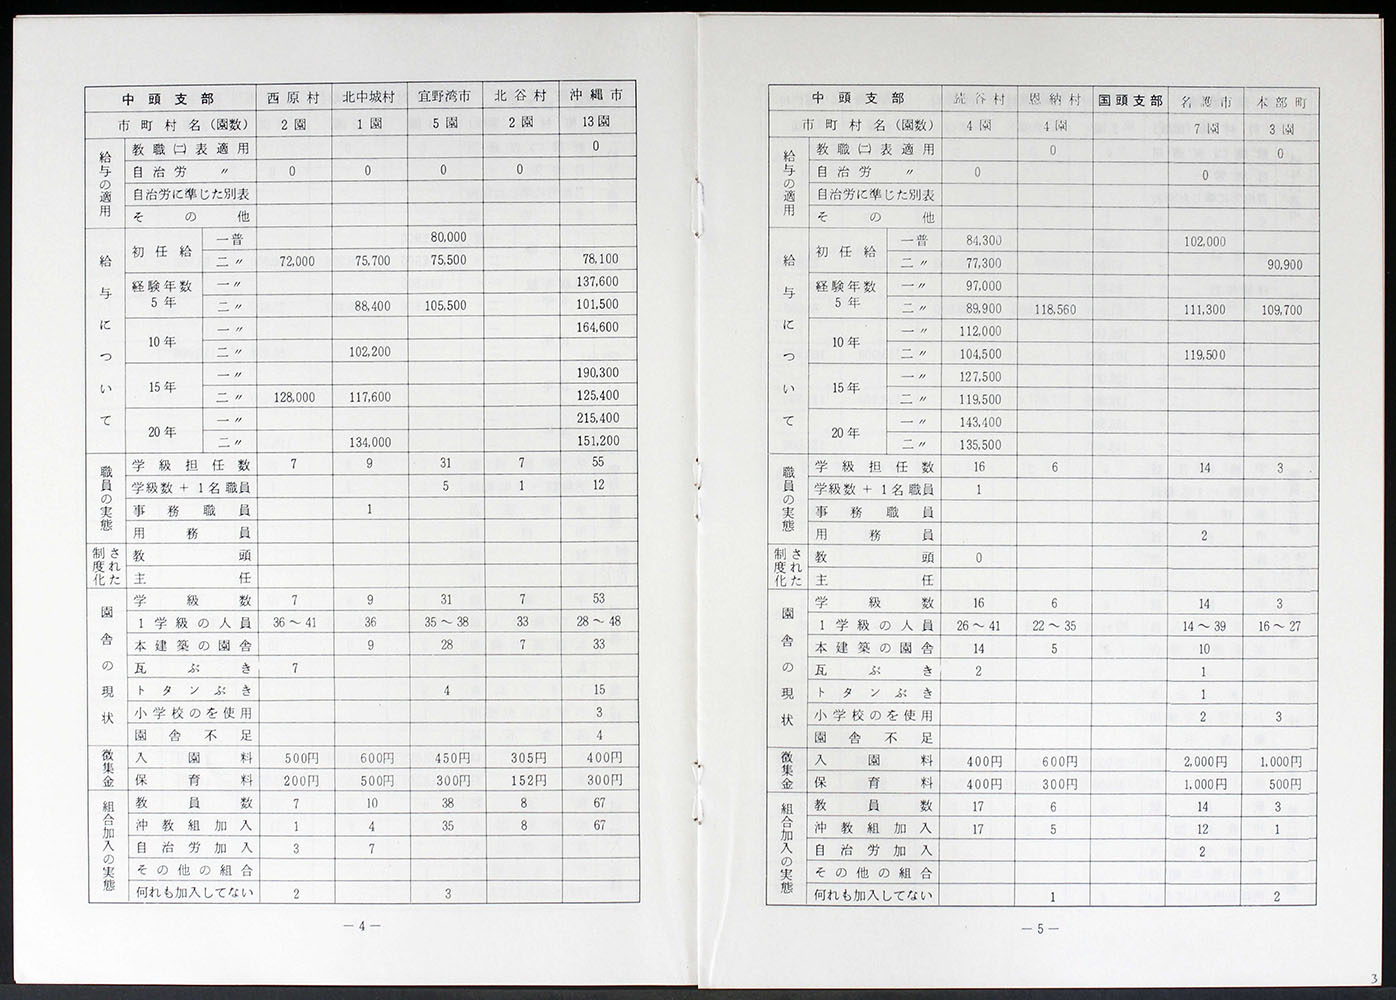 中頭支部 西原村 北中城村 宜野湾市 北谷村 沖縄市
市町村名(園数) 2園 1園 5園 2園 13園
給与の適用
教職㈡表適用 0
自治労 〃 0 0 0 0
自治労に準じた別表
その他
給与について
初任給 一普 80,000
二〃 72,000 75,700 75,500 78,100
経験年数 5年 一〃 137,600
二〃 88,400 105,500 101,500
10年 一〃 164,600
二〃 102,200
15年 一〃 190,300
二〃 128,000 117,600 125,400
20年 一〃 215,400
二〃 134,000 151,200
職員の実態
学級担任数 7 9 31 7 55
学級数+1名職員 5 1 12
事務職員 1
用務員
制度化された
教頭
主任
園舎の現状
学級数 7 9 31 7 53
1学級の人員 36〜41 36 35〜38 33 28〜48
本建築の園舎 9 28 7 33
瓦ぶき 7
トタンぶき 4 15
小学校のを使用 3
園舎不足 4
徴集金
入園料 500円 600円 450円 305円 400円
保育料 200円 500円 300円 152円 300円
組合加入の実態
教員数 7 10 38 8 67
沖教組加入 1 4 35 8 67
自治労加入 3 7
その他の組合
何れも加入してない 2 3
—4—
中頭支部 読谷村 恩納村 国頭支部 名護市 本部町
市町村名(園数) 4園 4園 7園 3園
給与の適用
教職㈡表適用 0 0
自治労 〃 0 0
自治労に準じた別表
その他
給与について
初任給 一普 84,300 102,000
二〃 77,300 90,900
経験年数 5年 一〃 97,000
二〃 89,900 118,560 111,300 109,700
10年 一〃 112,000
二〃 104,500 119,500
15年 一〃 127,500
二〃 119,500
20年 一〃 143,400
二〃 135,500
職員の実態
学級担任数 16 6 14 3
学級数+1名職員 1
事務職員
用務員 2
制度化された
教頭 0
主任
園舎の現状
学級数 16 6 14 3
1学級の人員 26〜41 22〜35 14〜39 16〜27
本建築の園舎 14 5 10
瓦ぶき 2 1
トタンぶき 1
小学校のを使用 2 3
園舎不足
徴集金
入園料 400円 600円 2,000円 1,000円
保育料 400円 300円 1,000円 500円
組合加入の実態
教員数 17 6 14 3
沖教組加入 17 5 12 1
自治労加入 2
その他の組合
何れも加入してない 1 2
—5—
3